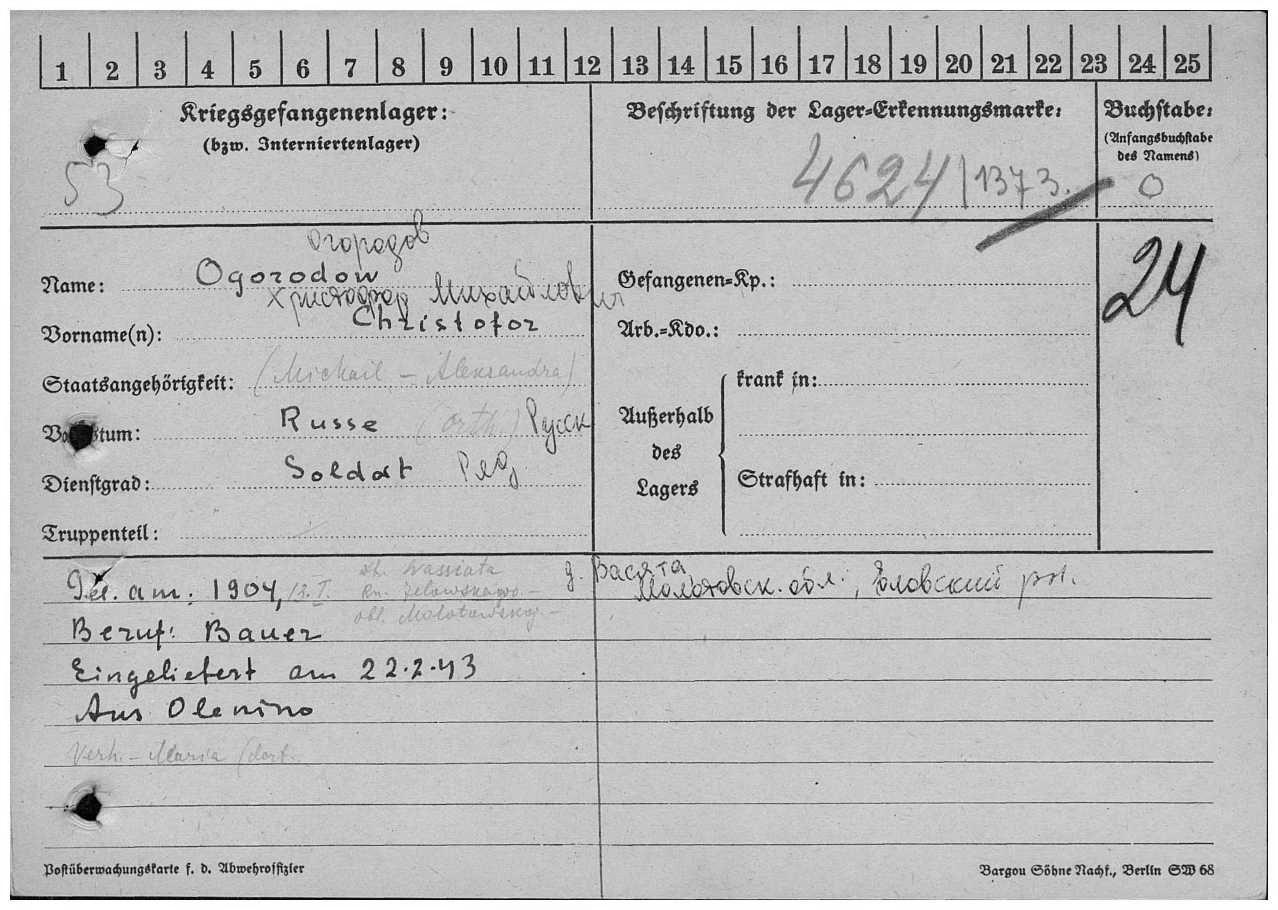 1 2 3 4 5 6 7 8 9 10 11 12 13 14 15 16 17 18 19 20 21 22 23 24 25
Kriegsgefangenenlager:
(bzw. Interniertenlager)
53
Beschriftung der Lager-Erkennungsmarke:
4624/1373.
Buchstabe:
(Anfangsbuchstabe
des Namens)
O
24
Огородов
Name: Ogorodow
Христофор Михайлович
Vorname(n): Christofor
Staatsangehörigkeit: (Michail - Aleksandra)
Volkstum: Russe (orth.) Русск
Dienstgrad: Soldat Ряд
Truppenteil:
Gefangenen-Kp.:
Arb.-Kdo.:
Außerhalb
des
Lagers
krank in:
Strafhaft in:
Geb. am: 1904, 13.I.
Wassiata
Jelowskawo
obl. Molotowskoj
д. Васята
Молотовск. обл., Еловский
Beruf: Bauer
Eingeliefert am 22.2.43
Aus Olenino
Verh. - Maria (dort.
Postüberwachungskarte f. d. Abwehroffizier
Bargou Söhne Nachf., Berlin SW 68